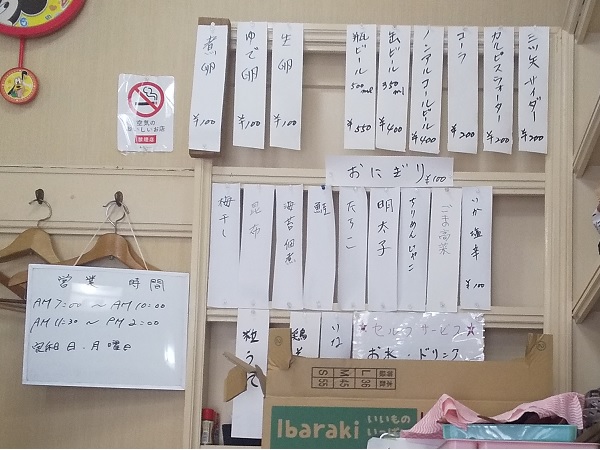 煮卵 ¥100
ゆで卵 ¥100
生卵 ¥100
瓶ビール 500ml ¥550
缶ビール 350ml ¥400
ノンアルコールビール ¥400
コーラ ¥200
カルピスウォーター ¥200
三ツ矢サイダー ¥200
空気の
おいしいお店
おにぎり ¥100
梅干し
昆布
海苔佃煮
鮭
たらこ
明太子
ちりめんじゃこ
ごま高菜
いか塩辛 ¥100
営業 時間
AM 7:00 ～ AM 10:00
AM 11:30 ～ PM 2:00
定休日・月曜日
セルフサービス
お水・ドリンク
S 55
M 45
L 36
Ibaraki
いいもの